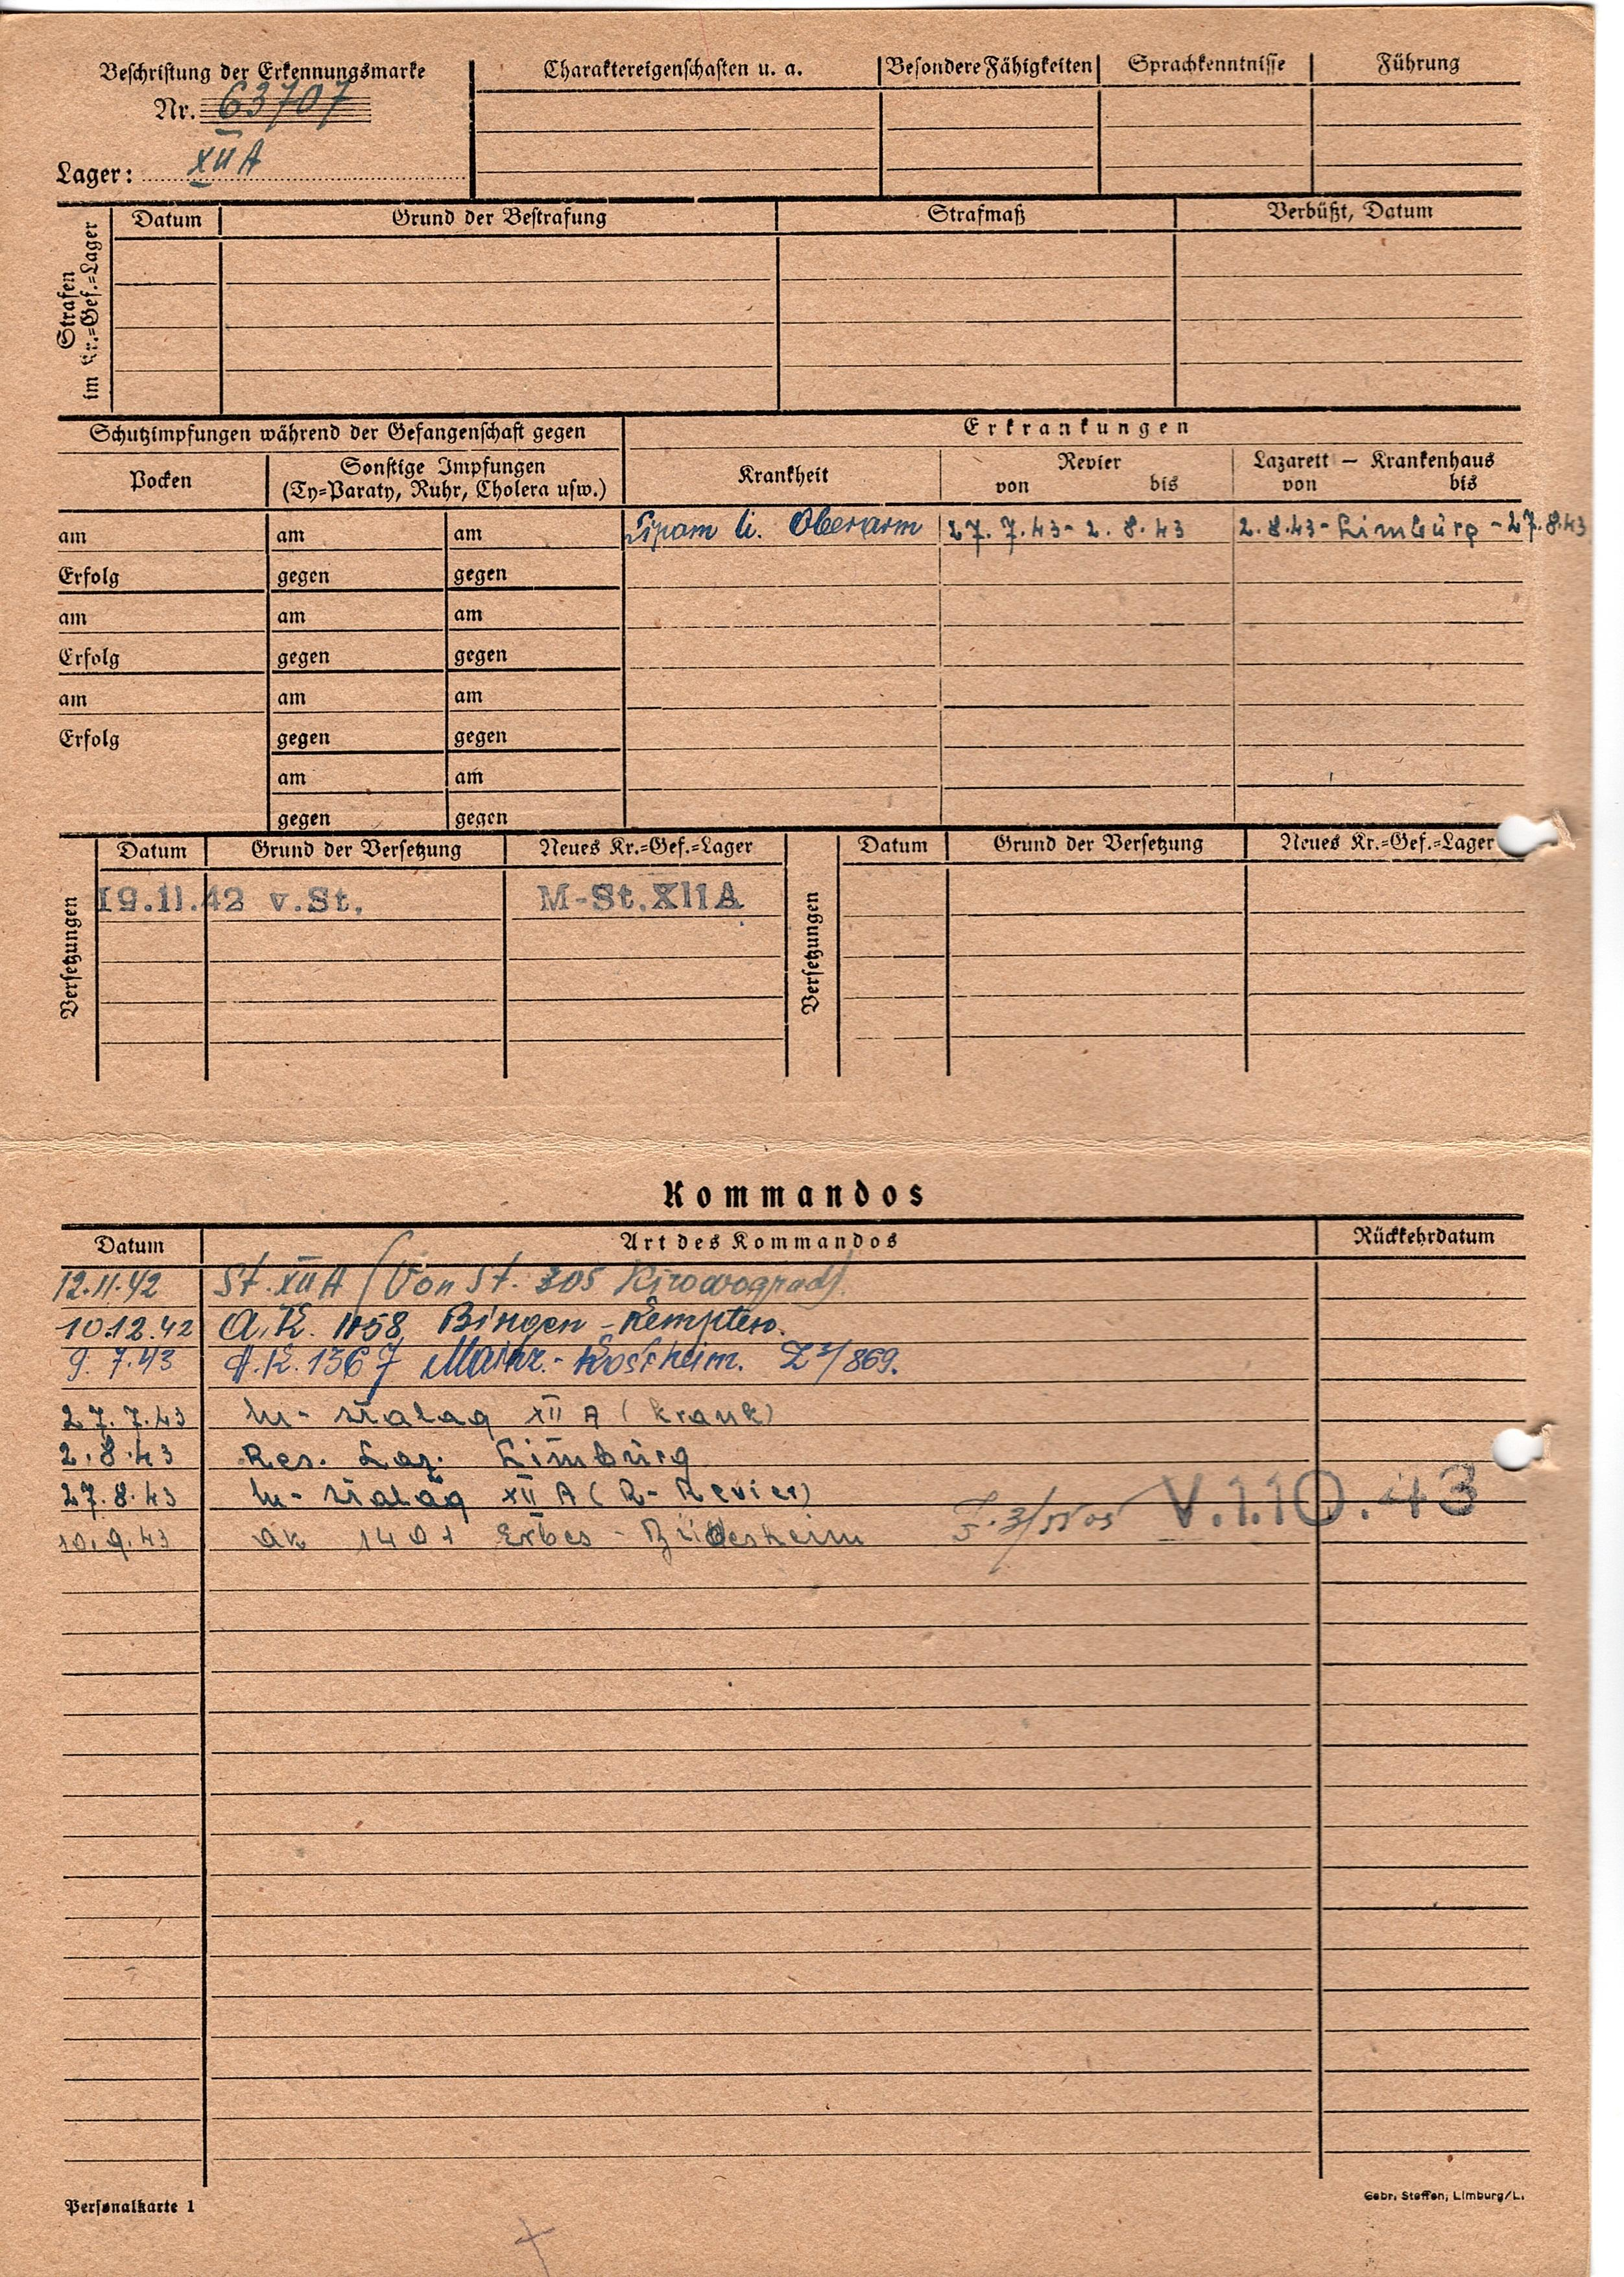 Beschriftung der Erkennungsmarke
Nr. 63707
Lager: XII A
Charaktereigenschaften u. a.
Besondere Fähigkeiten
Sprachkenntnisse
Führung
Strafen
im Kr.=Gef.=Lager
Datum
Grund der Bestrafung
Strafmaß
Verbüßt, Datum
Schutzimpfungen während der Gefangenschaft gegen
Erkrankungen
Pocken
Sonstige Impfungen
(Ty=Paraty, Ruhr, Cholera usw.)
Krankheit
Revier
von bis
Lazarett – Krankenhaus
von bis
am am am Lipom li. Oberarm 27.7.43 - 2.8.43 2.8.43 - Limburg - 27.8.43
Erfolg gegen gegen
am am am
Erfolg gegen gegen
am am am
Erfolg gegen gegen
am am
gegen gegen
Versetzungen
Datum Grund der Versetzung Neues Kr.=Gef.=Lager
19.11.42 v.St. M-St.XIIA
Versetzungen
Datum Grund der Versetzung Neues Kr.=Gef.=Lager
Kommandos
Datum Art des Kommandos Rückkehrdatum
12.11.42 St. XII A (Von St. 305 Kirowograd)
10.12.42 A.K. 1158 Bingen - Kempten.
9.7.43 A.K. 1367 Mainz - Kostheim. 869.
27.7.43 M- Stalag XII A (krank)
2.8.43 Res. Laz. Limburg
27.8.43 M- Stalag XII A (R- Revier)
V.1.10.43
10.9.43 AK 1401 Erbes - Büdesheim
Personalkarte 1
Gebr. Steffen, Limburg/L.